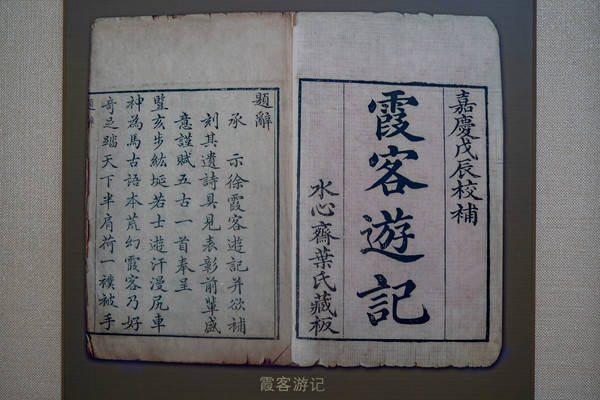 嘉慶戊辰校補
霞客遊記
水心齋葉氏藏板
題辭
承 示徐霞客遊記并欲補
刻其遺詩具見表彰前輩盛
意謹賦五古一首奉呈
豎亥步紘埏若士遊汗漫尻車
神為馬古語本荒幻霞客乃好
奇足踏天下半肩荷一襆被手
霞客游记